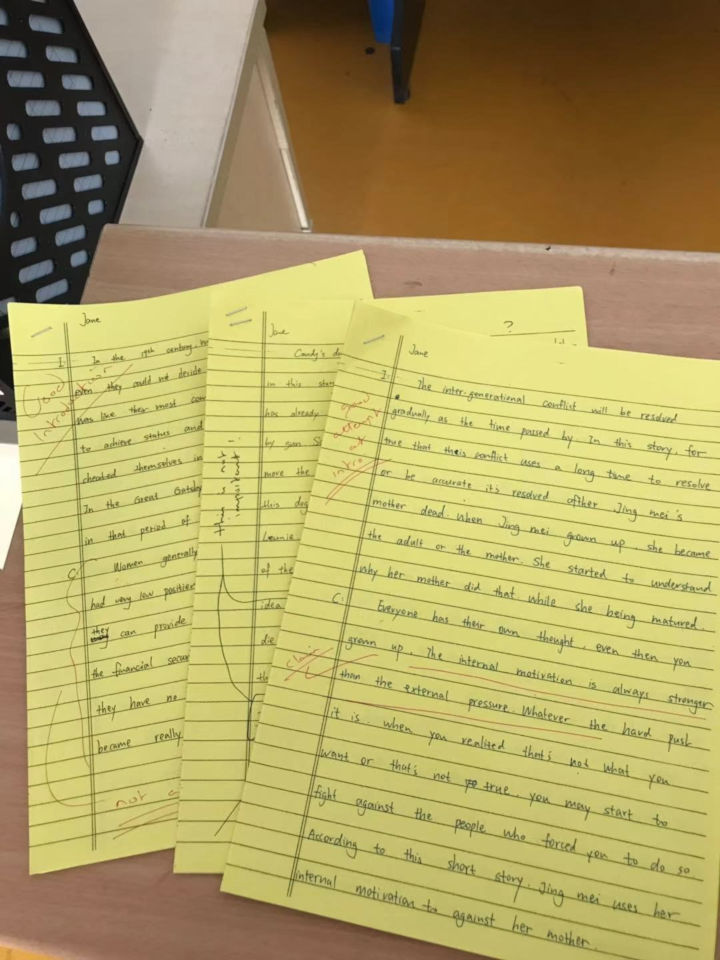 Jane
I: In the 19th century,
even they could not decide
was like their most
to achieve status and
cheated themselves in
In the Great Gatsby
in that period of
C: Women generally
had very low position
they can provide
the financial
they have no
became really
Good
Introduction
not
?
Jane
Candy's
in this
has already
by gun.
more the
this dog
of the
idea
die
This is not
important!
Jane
I: The inter-generational conflict will be resolved
gradually as the time passed by. In this story, for
true that this conflict uses a long time to resolve
or be accurate it's resolved after Jing mei's
mother dead. When Jing mei grown up, she became
the adult or the mother. She started to understand
why her mother did that while she being matured.
C: Everyone has their own thought, even then you
grown up. The internal motivation is always stronger
than the external pressure. Whatever the hard push
it is. when you realized that's not what you
want or that's not true. you may start to
fight against the people who forced you to do so
According to this short story. Jing mei uses her
internal motivation to against her mother.
good
attempt
at
intro
claim